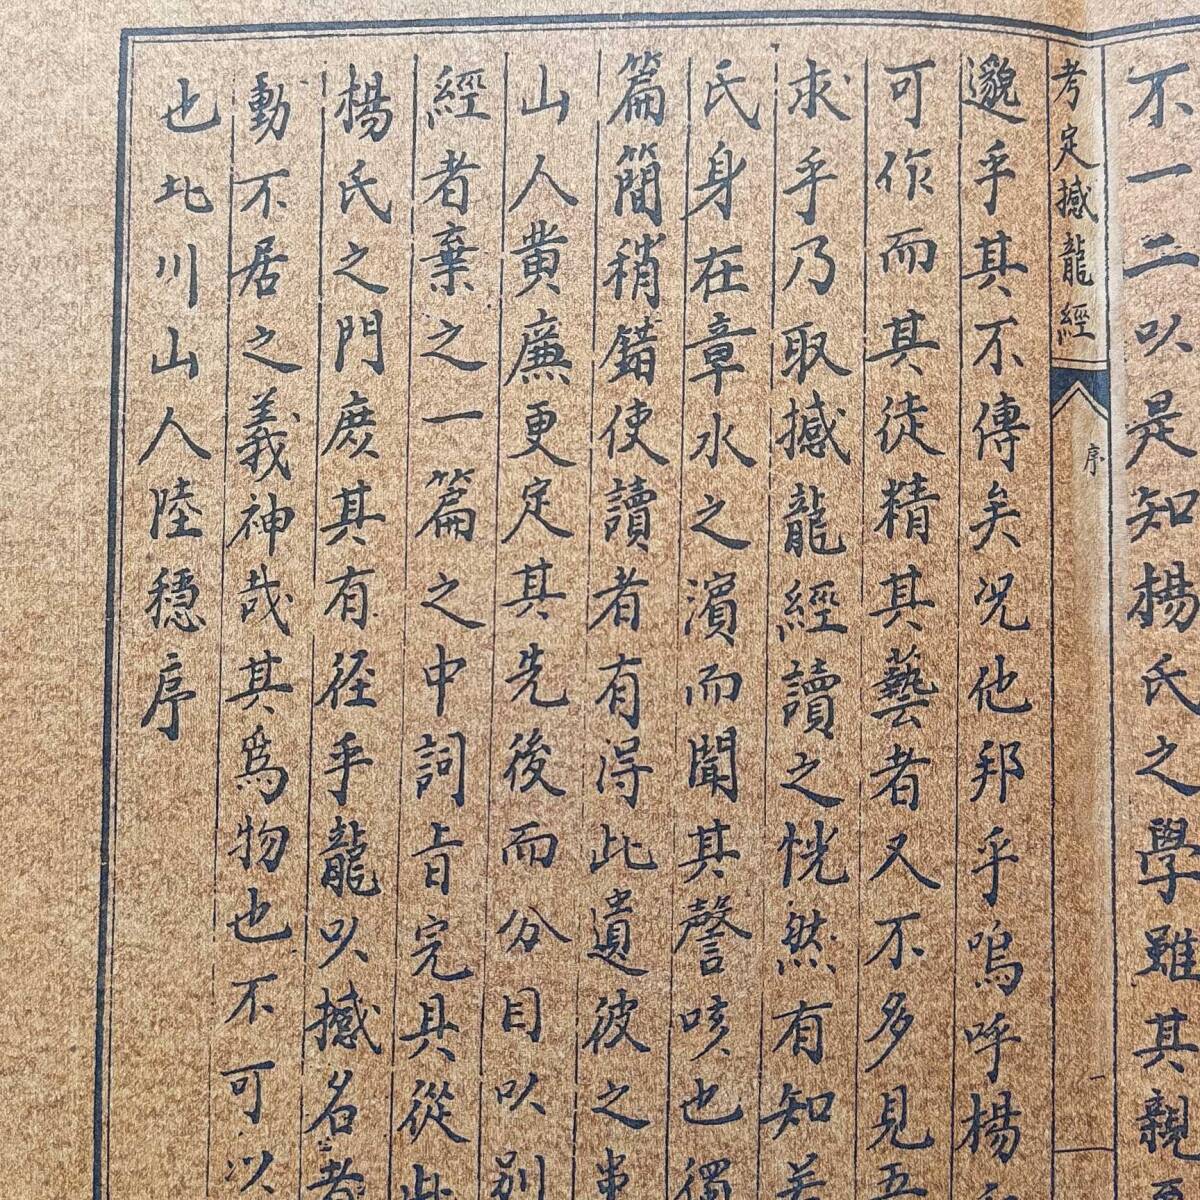 不一二以是知楊氏之學雖其親
考定撼龍經
序
邈乎其不傳矣况他邦乎嗚呼楊
可作而其徒精其藝者又不多見五
求乎乃取撼龍經讀之恍然有知
氏身在章水之濱而聞其謦咳也獨
篇簡稍錯使讀者有淂此遺彼之患
山人黄廉更定其先後而分目以別
經者棄之一篇之中詞旨完具從此
楊氏之門庶其有径乎龍以撼名者
動不居之義神哉其爲物也不可以
也北川山人陸穩序